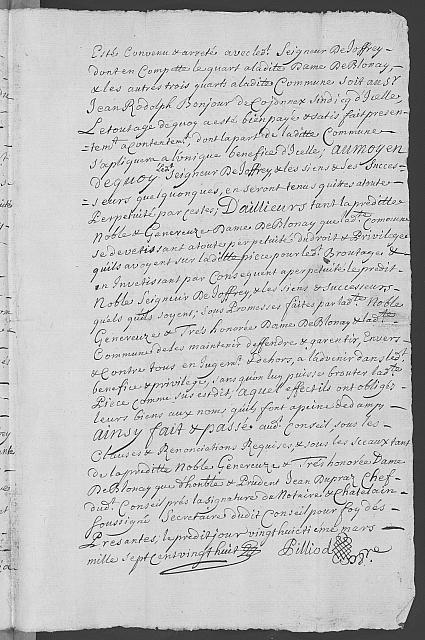 Esté Convenu & arreté avec ledt. Seigneur De Joffrey
dont en Compette le quart aladite Dame De Blonay,
& les autres trois quarts aladite Commune soit au Sr.
Jean Rodolph Bonjour de Cojonnex sindicq d'Icelle,
Le toutage de quoy a esté bien payé & satisfait presen=
=temt. a Contentemt., dont la part de laditte Commune
s'appliquera a l'unique benefice d'Icelle; au moyen
de quoy ledt. Seigneur De Joffrey & les siens & les Succes=
=seurs quelquonques, en seront tenus quittes atoute
Perpetuité par cestes; Dailleurs tant la preditte
Noble & Genereuze Dame De Blonay que ladte. Commune
se devetissant atoute perpetuité du droit & Privilege
quils avoyent sur la ditte pièce pour lesd. Broutages &
en Investissant par Consequent a perpetuité le predit
Noble Seigneur De Joffrey, & les siens & Successeurs
quels quils soyent; sous Promesses faites par ladte. Noble
Genereuze & Tres honorée Dame De Blonay & ladte.
Commune de les maintenir deffendre & garentir, Envers
& Contre tous en Jugemt. & dehors, a l'advenir dans ledt.
benefice & privilege, sans qu'on luy puisse brouter ladte.
Pièce comme sus est dit; aquel effect ils ont obligés
leurs biens aux noms quils sont apeine de damp.
ainsy fait & passé aud. Conseil sous les
Clauses & Renonciations Requises, & sous les Sceaux tant
de la preditte Noble Genereuze & Tres honorée Dame
De Blonay que d'honble. & Prudent Jean Dupraz Chef
dudt. Conseil près la signature du Notaire & Chatelain
soussigné Secretaire dudit Conseil pour foy des
Presantes, le predit jour vingt huictieme mars
mille sept cent vingt huit Billiod